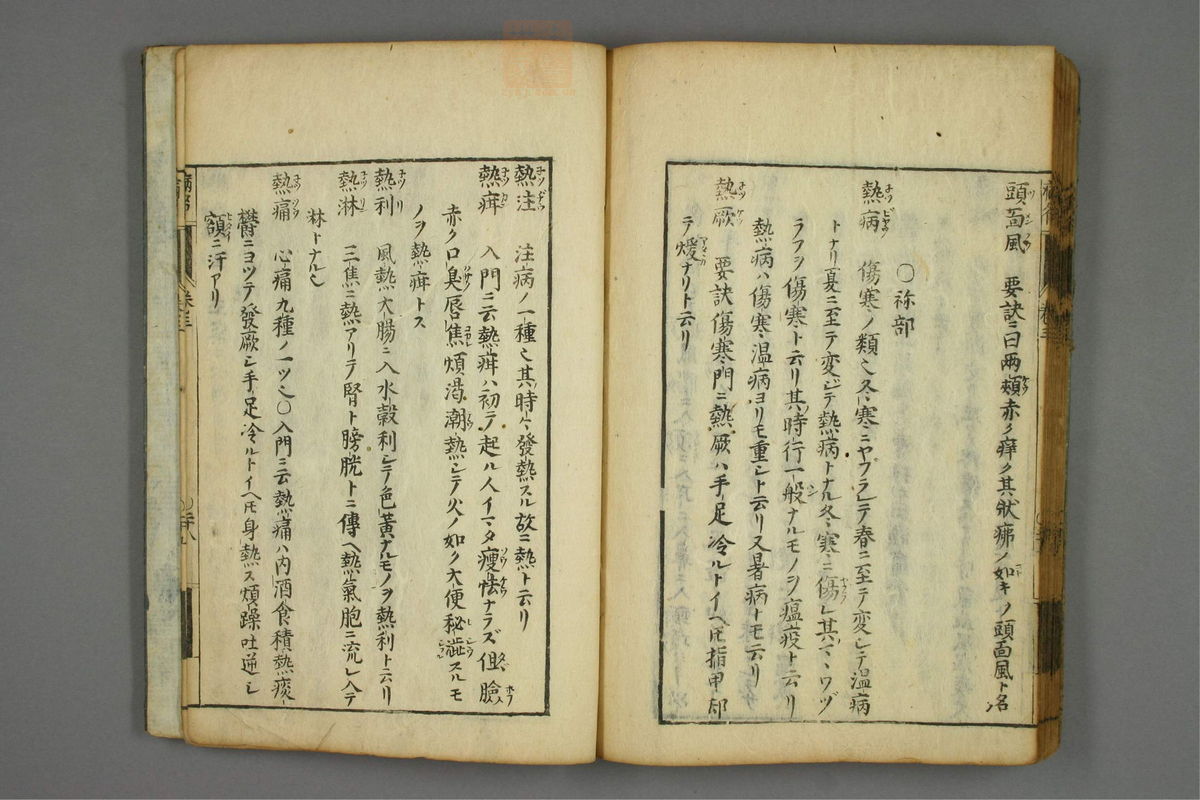 頭面風　要訣ニ曰両頬赤ク痒ク其状痱ノ如キノ頭面風ト名
〇祢部
熱病　傷寒ノ類也冬寒ニヤブラレテ春ニ至テ変シテ温病
トナリ夏ニ至テ変ジテ熱病トナル冬寒ニ傷レ其マヽワヅ
ラフヲ傷寒ト云リ其時行一般ナルモノヲ瘟疫ト云リ
熱病ハ傷寒温病ヨリモ重シト云リ又暑病トモ云リ
熱厥　要訣傷寒門ニ熱厥ハ手足冷ルトイヘ𪜈指甲却
テ煖ナリト云リ
熱注　注病ノ一種也其時々發熱スル故ニ熱ト云リ
熱疳　入門ニ云熱疳ハ初テ起ル人イマタ瘦怯ナラズ但臉
赤ク口臭唇焦煩渇潮熱シテ火ノ如ク大便秘澁スルモ
ノヲ熱疳トス
熱利　風熱大腸ニ入水穀利シテ色黄ナルモノヲ熱利ト云リ
熱淋　三焦ニ熱アリテ腎ト膀胱トニ傳ヘ熱氣胞ニ流レ入テ
淋トナル也
熱痛　心痛九種ノ一ツ也〇入門ニ云熱痛ハ内酒食積熱痰
欝ニヨツテ發厥シ手足冷ルトイヘ𪜈身熱ス煩躁吐逆シ
額ニ汗アリ